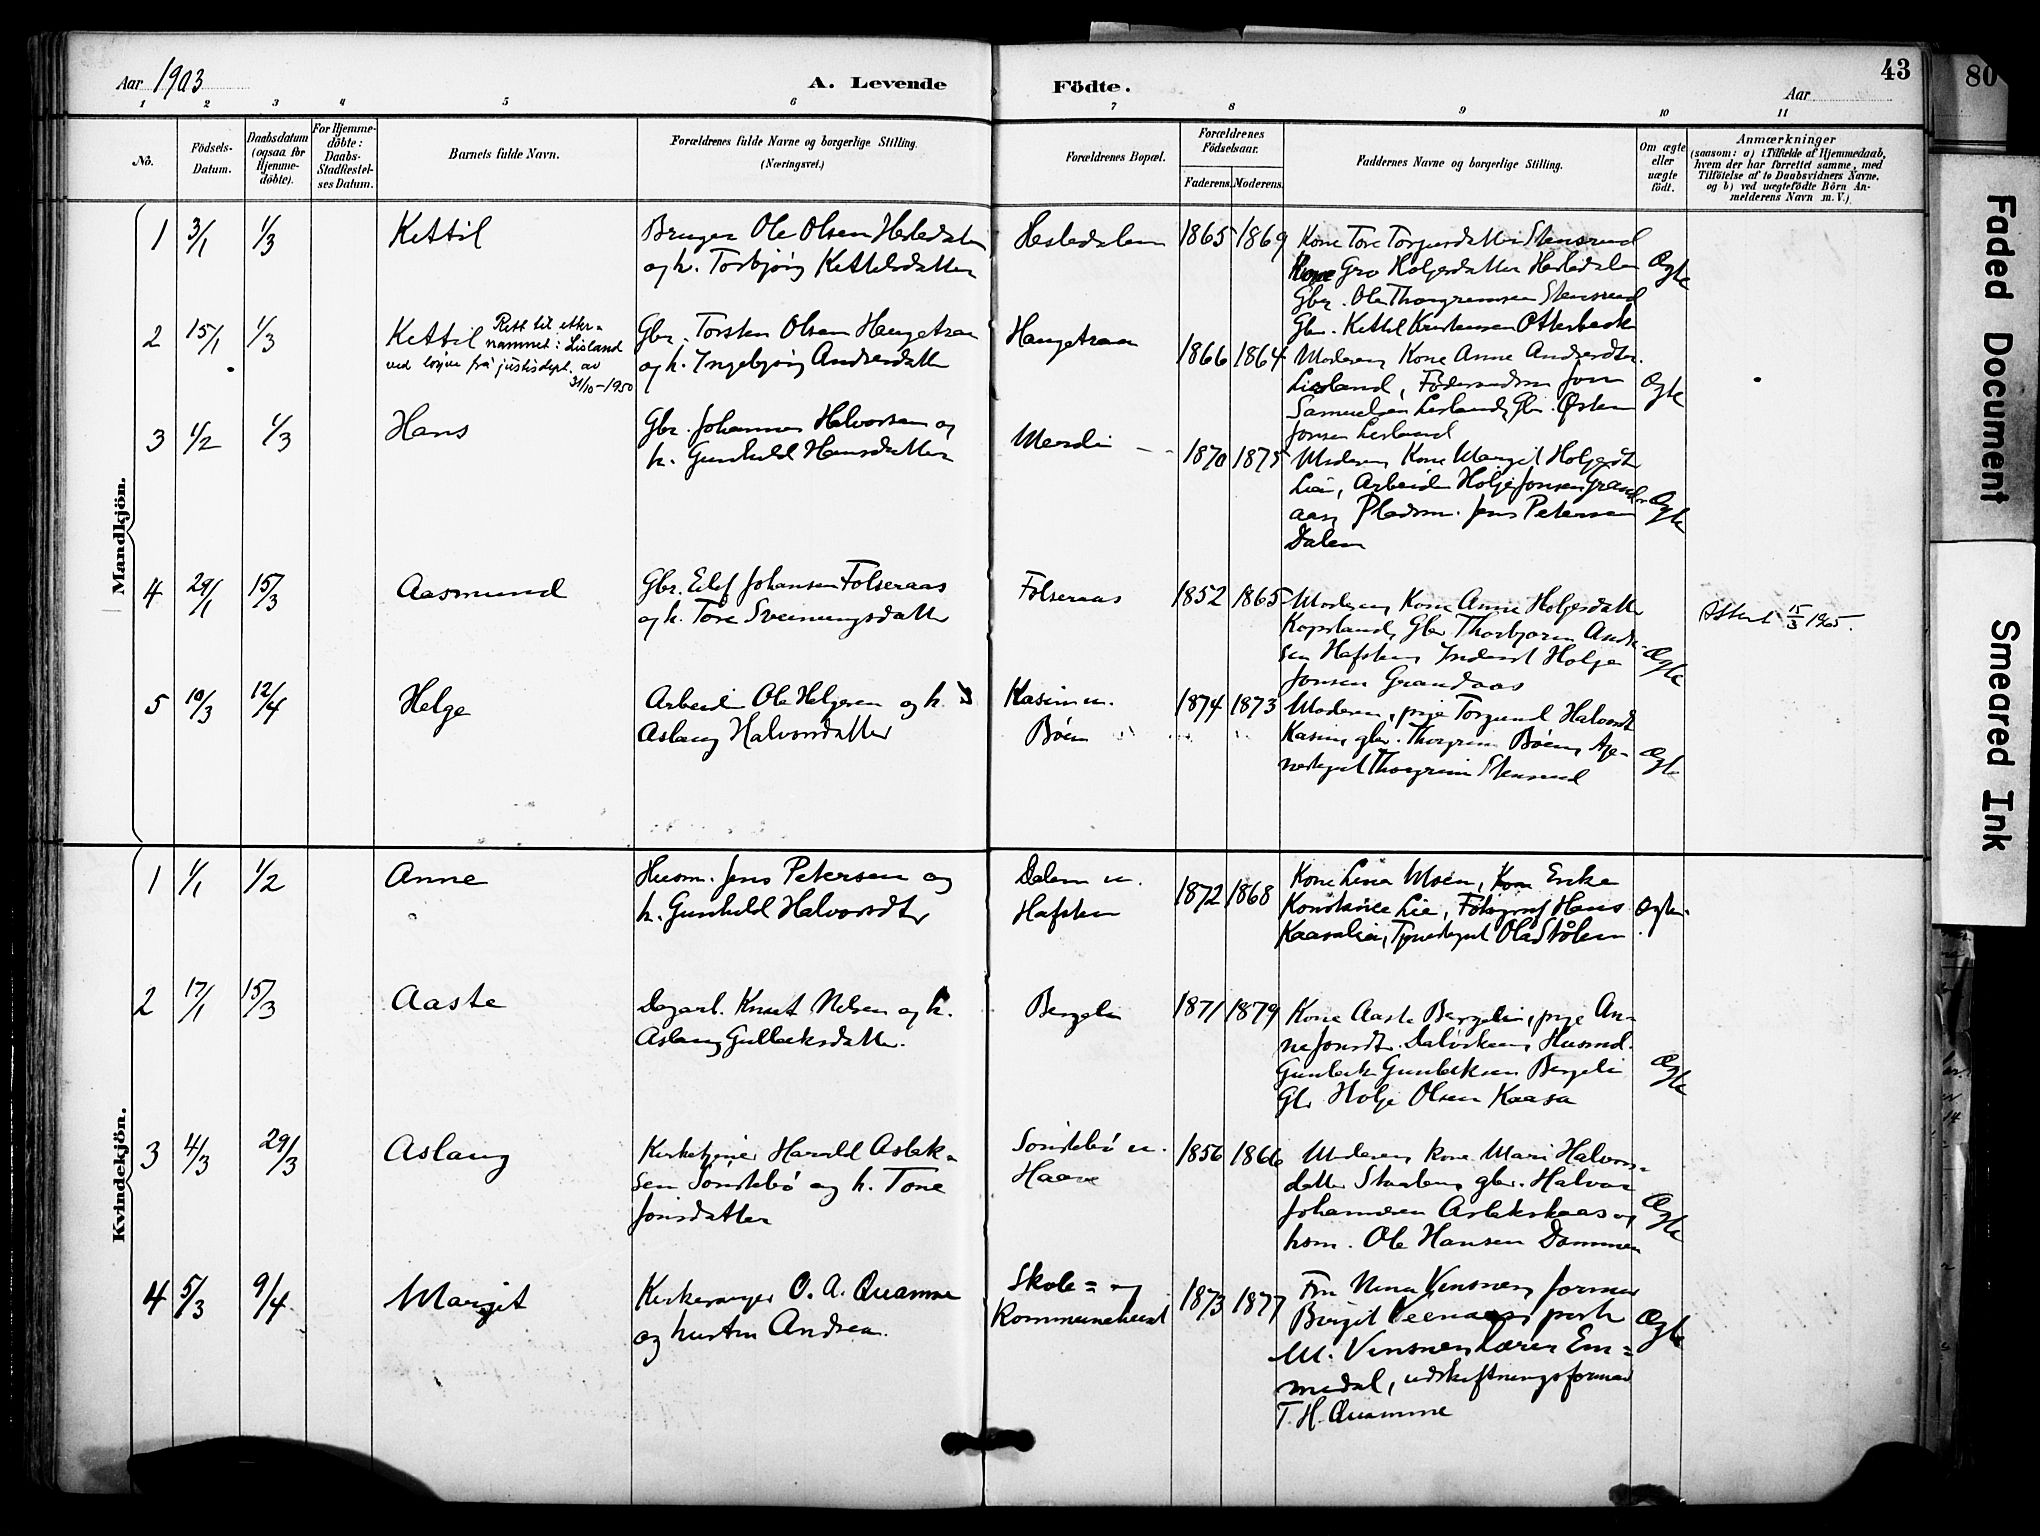 Aar 1903
A. Levende
Födte.
43
80
Aar
1 2 3 4 5 6 7 8 9 10 11
No.
Födsels-
Datum.
Daabsdatum
(ogsaa for
Hjemme-
döbte).
For Hjemme-
döbte:
Daabs-
Stadfæstel-
ses Datum.
Barnets fulde Navn.
Forældrenes fulde Navne og borgerlige Stilling.
(Næringsvei.)
Forældrenes Bopæl.
Forældrenes
Födselsaar.
Faderens. Moderens.
Faddernes Navne og borgerlige Stilling.
Om ægte
eller
uægte
födt.
Anmærkninger
(saasom: a) i Tilfælde af Hjemmedaab,
hvem der har forrettet samme, med
Tilföielse af to Daabsvidners Navne.
og b) ved uægtefödte Börn An-
melderens Navn m. V.)
Mandkjön.
1 3/1 1/3 Kettil
Bruger Ole Olsen Hesledalen
og h. Torbjørg Kettelsdatter
Hesledalen 1865 1869
Kone Tore Torgersdatter Stensrud
Kone Gro Holjesdatter Hesledalen
Gbr. Ole Thorgrimsen Stensrud
Gbr. Kettil Kristensen Otterbæk
Ægte
2 15/1 1/3 Kettil
Rett til etter-
namnet: Lisland
ved løyve frå justisdept. av
31/10-1950
Gbr. Torsten Olsen Haugetraa
og h. Ingebjørg Andersdatter
Haugetraa 1866 1864
Moderen, Kone Anne Andersdtr.
Lisland, Föderaadsm. Jon
Samuelsen Lisland, Gbr. Østen
Jonsen Lisland
Ægte
3 1/2 1/3 Hans
Gbr. Johannes Halvorsen og
h. Gunhild Hansdatter
1870 1875
Moderen, Kone Margit Holjesdtr
Lien, Arbeider Holje Jonsen Grand-
aas, Pladsm. Jens Petersen
Dalen
Ægte
4 29/1 15/3 Aasmund
Gbr. Eilef Johansen Folseraas
og h. Tore Sveinungsdatter
Folseraas 1852 1865
Moderen, Kone Anne Holjesdatter
Kopsland, Gbr Thorbjørn Ande-
sen Hafsten, Inderst Holje
Jonsen Grandaas
Ægte
Attest 15/3 1965.
5 10/3 12/4 Helge
Arbeider Ole Helgesen og h.
Aslaug Halvorsdatter
Kasin u.
Bøen
1874 1873
Moderen, pige Torgund Halvorsdt
Kasin, gbr. Thorgrim Bøen, Tje-
nestegut Thorgrim Stensrud
Ægte
Kvindekjön.
1 1/1 1/2 Anne
Husm. Jens Petersen og
h. Gunhild Halvorsdtr
Dalen u.
Hafsten
1872 1868
Kone Lina Moen, Enke
Konstance Lie, Fotograf Hans
Kaasalien, Tjenestegut Ola Stålen
Ægte.
2 17/1 15/3 Aaste
Dagarb. Knut Nelsen og h.
Aslaug Gulleiksdatter.
Bergelien 1871 1879
Kone Aaste Bergelien, pige An-
ne Jonsdtr. Husmd.
Gunleik Gunleiksen Bergelien
Gbr Holje Olsen Kaasa
Ægte
3 4/3 29/3 Aslaug
Kirketjener Harald Aslak-
sen Sønstebø og h. Tone
Jonsdatter
Sønstebø u.
Haave
1856 1866
Moderen, kone Mari Halvors-
datter gbr. Halvor
Johannesen Aslakskaas og
hsm. Ole Hansen Dommen
Ægte
4 5/3 9/4 Margit
Kirkesanger O. A. Quamme
og hustru Andrea.
Skole= og
kommunehuset
1873 1877
Fru Nina Vinsnes, Jomfru
Birgit
M. Vinsnes, Lærer Em=
medal, udskiftningsformand
T. H. Quamme
Ægte
Faded Document
Smeared Ink